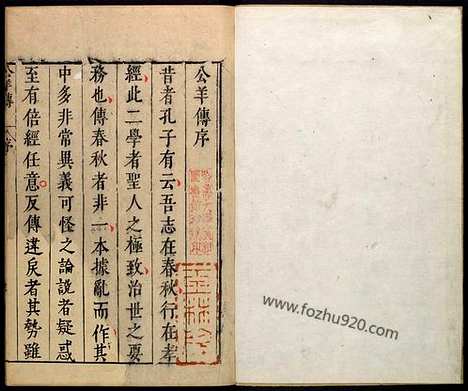 公羊傳序
昔者孔子有云吾志在春秋行在孝
經此二學者聖人之極致治世之要
務也傳春秋者非一本據亂而作其
中多非常異義可怪之論說者疑惑
至有倍經任意反傳違戾者其勢雖
公羊傳
序
www.fozhu920.com